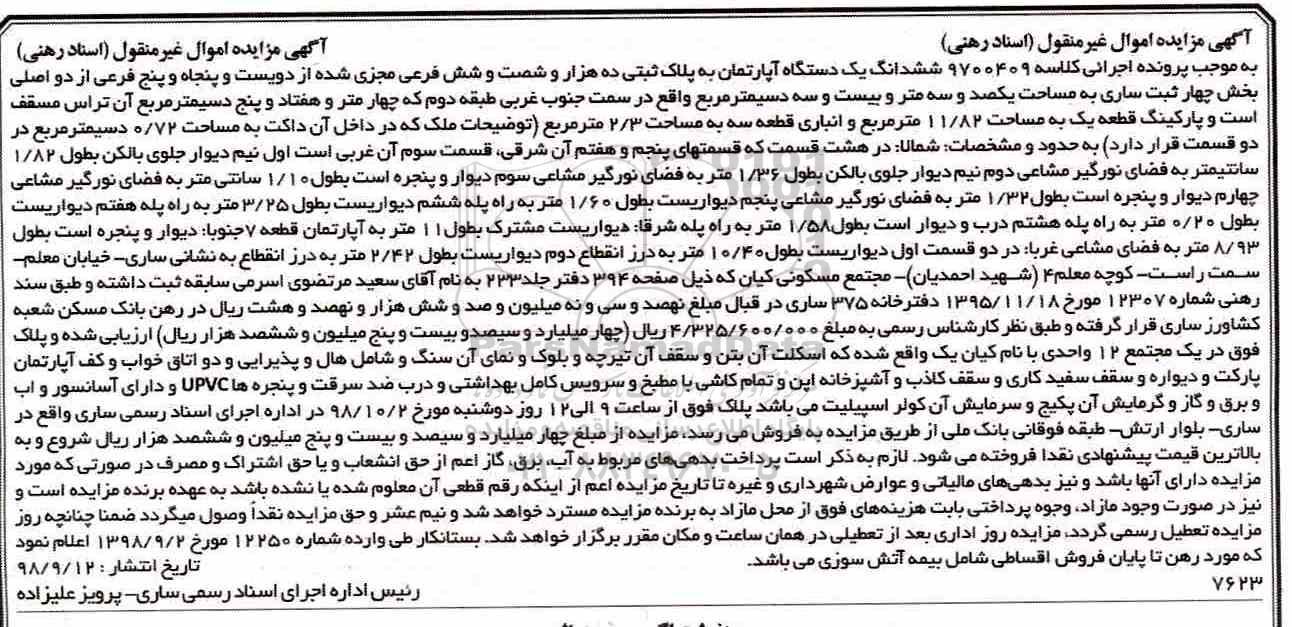 آگهی مزایده اموال غیرمنقول (اسناد رهنی)
آگهی مزایده اموال غیرمنقول (اسناد رهنی)
به موجب پرونده اجرائی کلاسه ۹۷۰۰۴۰۹ ششدانگ یک دستگاه آپارتمان به پلاک ثبتی ده هزار و شصت و شش فرعی مجزی شده از دویست و پنجاه و پنج فرعی از دو اصلی
بخش چهار ثبت ساری به مساحت یکصد و سه متر و بیست و سه دسیمترمربع واقع در سمت جنوب غربی طبقه دوم که چهار متر و هفتاد و پنج دسیمترمربع آن تراس مسقف
است و پارکینگ قطعه یک به مساحت ۱۱/۸۲ مترمربع و انباری قطعه سه به مساحت ۲/۳ مترمربع (توضیحات ملک که در داخل آن داکت به مساحت ۰/۷۲ دسیمترمربع در
دو قسمت قرار دارد) به حدود و مشخصات: شمالا: در هشت قسمت که قسمتهای پنجم و هفتم آن شرقی، قسمت سوم آن غربی است اول نیم دیوار جلوی بالکن بطول ۱/۸۲
سانتیمتر به فضای نورگیر مشاعی دوم نیم دیوار جلوی بالکن بطول ۱/۳۶ متر به فضای نورگیر مشاعی سوم دیوار و پنجره است بطول ۱/۱۰ سانتی متر به فضای نورگیر مشاعی
چهارم دیوار و پنجره است بطول ۱/۳۲ متر به فضای نورگیر مشاعی پنجم دیواریست بطول ۱/۶۰ متر به راه پله ششم دیواریست بطول ۳/۲۵ متر به راه پله هفتم دیواریست
بطول ۰/۲۰ متر به راه پله هشتم درب و دیوار است بطول ۱/۵۸ متر به راه پله شرقا: دیواریست مشترک بطول ۱۱ متر به آپارتمان قطعه ۷ جنوبا: دیوار و پنجره است بطول
۸/۹۳ متر به فضای مشاعی غربا: در دو قسمت اول دیواریست بطول ۱۰/۴۰ متر به درز انقطاع دوم دیواریست بطول ۲/۴۲ متر به درز انقطاع به نشانی ساری– خیابان معلم–
سمت راست– کوچه معلم ۴ (شهید احمدیان)– مجتمع مسکونی کیان که ذیل صفحه ۳۹۴ دفتر جلد ۲۳۳ به نام آقای سعید مرتضوی اسرمی سابقه ثبت داشته و طبق سند
رهنی شماره ۱۲۳۰۷ مورخ ۱۳۹۵/۱۱/۱۸ دفترخانه ۳۷۵ ساری در قبال مبلغ نهصد و سی و نه میلیون و صد و شش هزار و نهصد و هشت ریال در رهن بانک مسکن شعبه
کشاورز ساری قرار گرفته و طبق نظر کارشناس رسمی به مبلغ ۴/۳۲۵/۶۰۰/۰۰۰ ریال (چهار میلیارد و سیصدو بیست و پنج میلیون و ششصد هزار ریال) ارزیابی شده و پلاک
فوق در یک مجتمع ۱۲ واحدی با نام کیان یک واقع شده که اسکلت آن بتن و سقف آن تیرچه و بلوک و نمای آن سنگ و شامل هال و پذیرایی و دو اتاق خواب و کف آپارتمان
پارکت و دیواره و سقف سفید کاری و سقف کاذب و آشپزخانه اپن و تمام کاشی با مطبخ و سرویس کامل بهداشتی و درب ضد سرقت و پنجره ها UPVC و دارای آسانسور و اب
و برق و گاز و گرمایش آن پکیج و سرمایش آن کولر اسپیلیت می باشد پلاک فوق از ساعت ۹ الی ۱۲ روز دوشنبه مورخ ۹۸/۱۰/۲ در اداره اجرای اسناد رسمی ساری واقع در
ساری– بلوار ارتش– طبقه فوقانی بانک ملی از طریق مزایده به فروش می رسد، مزایده از مبلغ چهار میلیارد و سیصد و بیست و پنج میلیون و ششصد هزار ریال شروع و به
بالاترین قیمت پیشنهادی نقدا فروخته می شود. لازم به ذکر است پرداخت بدهی‌های مربوط به آب، برق، گاز اعم از حق انشعاب و یا حق اشتراک و مصرف در صورتی که مورد
مزایده دارای آنها باشد و نیز بدهی‌های مالیاتی و عوارض شهرداری و غیره تا تاریخ مزایده اعم از اینکه رقم قطعی آن معلوم شده یا نشده باشد به عهده برنده مزایده است و
نیز در صورت وجود مازاد، وجوه پرداختی بابت هزینه‌های فوق از محل مازاد به برنده مزایده مسترد خواهد شد و نیم عشر و حق مزایده نقداً وصول میگردد ضمنا چنانچه روز
مزایده تعطیل رسمی گردد، مزایده روز اداری بعد از تعطیلی در همان ساعت و مکان مقرر برگزار خواهد شد. بستانکار طی وارده شماره ۱۲۲۵۰ مورخ ۱۳۹۸/۹/۲ اعلام نمود
که مورد رهن تا پایان فروش اقساطی شامل بیمه آتش سوزی می باشد.
تاریخ انتشار : ۹۸/۹/۱۲
۷۶۲۳
رئیس اداره اجرای اسناد رسمی ساری– پرویز علیزاده
ParsNamadData